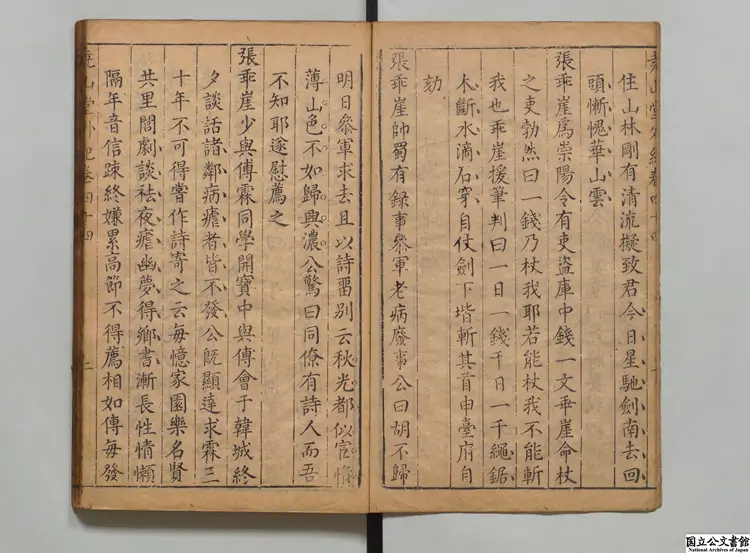 住山林剛有清流擬致君今日星馳劍南去回
頭慚愧華山雲
張乖崖爲崇陽令有吏盜庫中錢一文乖崖命杖
之吏勃然曰一錢乃杖我耶若能杖我不能斬
我也乖崖援筆判曰一日一錢千日一千繩鋸
木斷水滴石穿自仗劍下堦斬其首申臺府自
劾
張乖崖帥蜀有録事叅軍老病廢事公曰胡不歸
明日叅軍求去且以詩畱別云秋光都似宦情
薄山色不如歸興濃公驚曰同僚有詩人而吾
不知耶遂慰薦之
張乖崖少與傅霖同學開寶中與傅會于韓城終
夕談話諸鄰病瘧者皆不發公既顯達求霖三
十年不可得嘗作詩寄之云每憶家園樂名賢
共里閭劇談祛夜瘧幽夢得鄉書漸長性情懶
隔年音信疎終嫌累高節不得薦相如傅每發
堯山堂外紀卷四十四 二
国立公文書館
National Archives of Japan